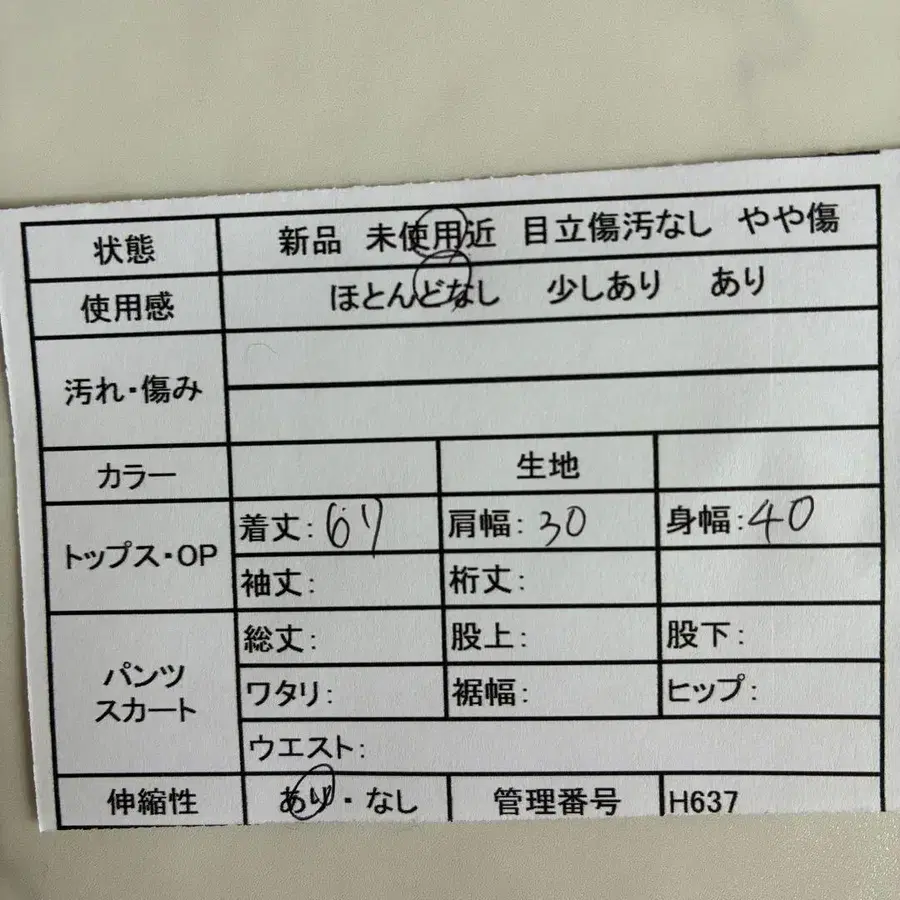 状態 新品 未使用近 目立傷汚なし やや傷
使用感 ほとんどなし 少しあり あり
汚れ・傷み
カラー 生地
トップス・OP 着丈: 67 肩幅: 30 身幅: 40
袖丈: 裄丈:
パンツ スカート 総丈: 股上: 股下:
ワタリ: 裾幅: ヒップ:
ウエスト:
伸縮性 あり・なし 管理番号 H637